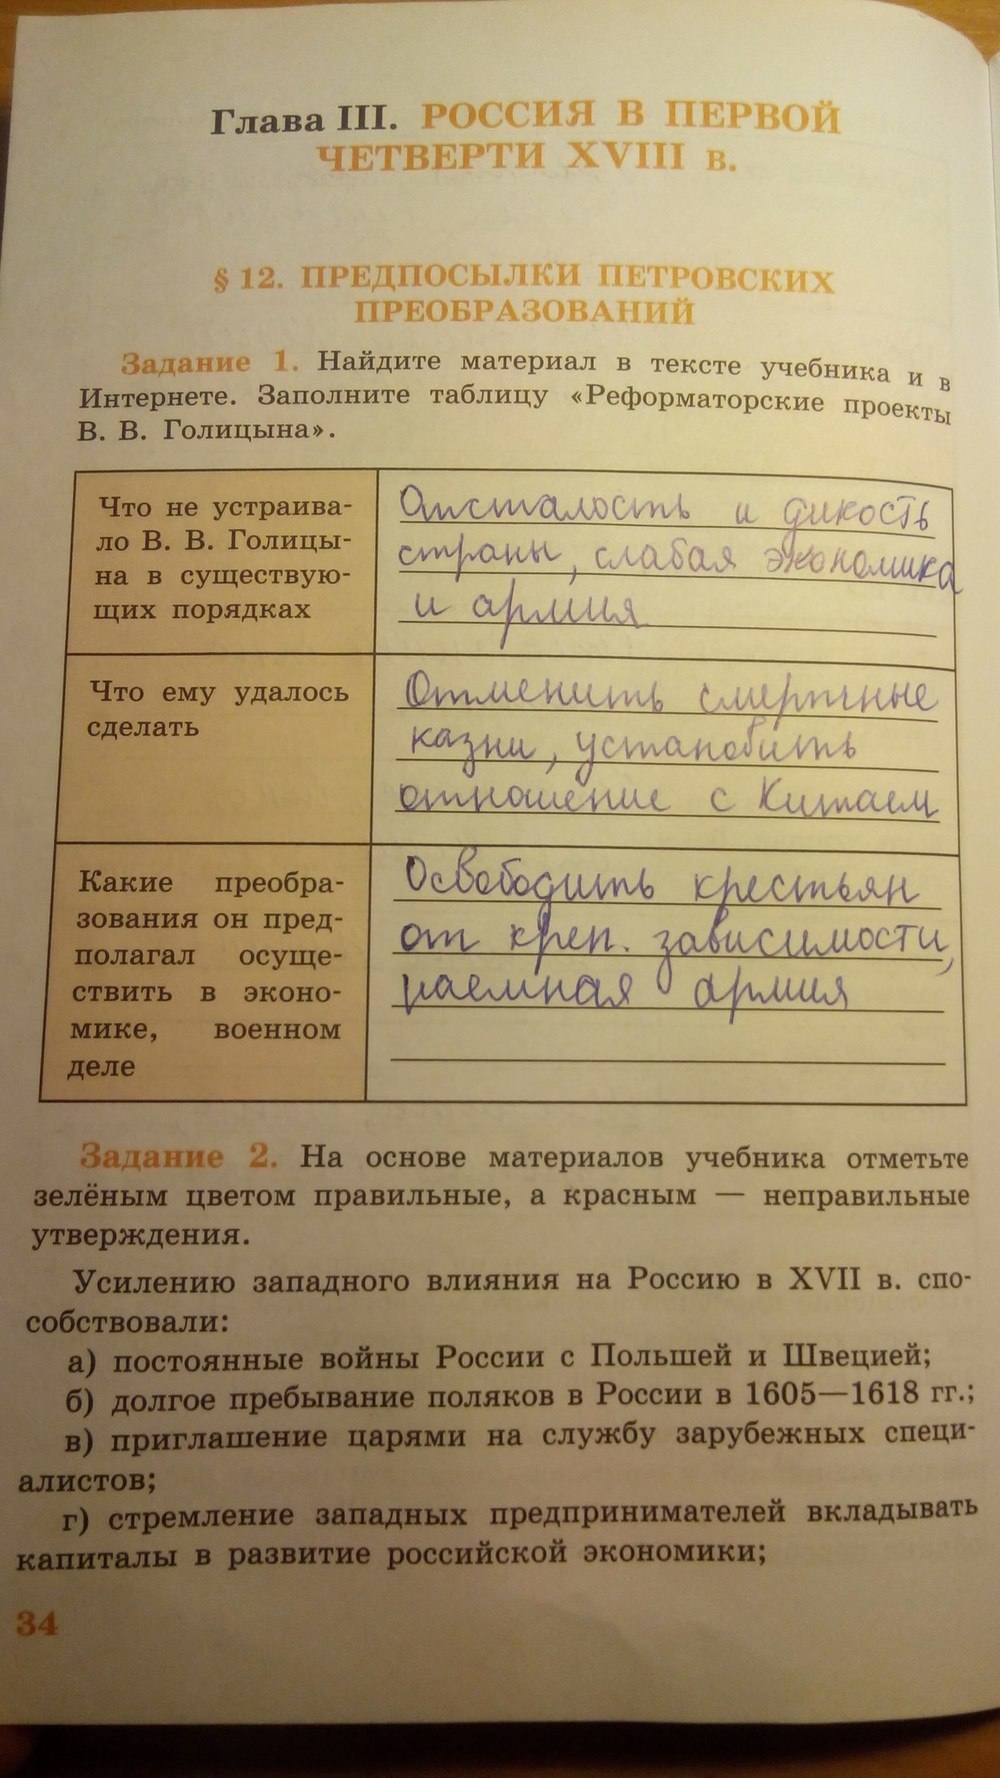 Глава III. РОССИЯ В ПЕРВОЙ
ЧЕТВЕРТИ XVIII в.
§ 12. ПРЕДПОСЫЛКИ ПЕТРОВСКИХ
ПРЕОБРАЗОВАНИЙ
Задание 1. Найдите материал в тексте учебника и в
Интернете. Заполните таблицу «Реформаторские проекты
В. В. Голицына».
Что не устраива-
ло В. В. Голицы-
на в существую-
щих порядках
Отсталость и дикость
страны, слабая экономика
и армия
Что ему удалось
сделать
Отменить смертные
казни, установить
отношение с Китаем
Какие преобра-
зования он пред-
полагал осуще-
ствить в эконо-
мике, военном
деле
Освободить крестьян
от креп. зависимости,
наемная армия
Задание 2. На основе материалов учебника отметьте
зелёным цветом правильные, а красным — неправильные
утверждения.
Усилению западного влияния на Россию в XVII в. спо-
собствовали:
а) постоянные войны России с Польшей и Швецией;
б) долгое пребывание поляков в России в 1605—1618 гг.;
в) приглашение царями на службу зарубежных специ-
алистов;
г) стремление западных предпринимателей вкладывать
капиталы в развитие российской экономики;
34